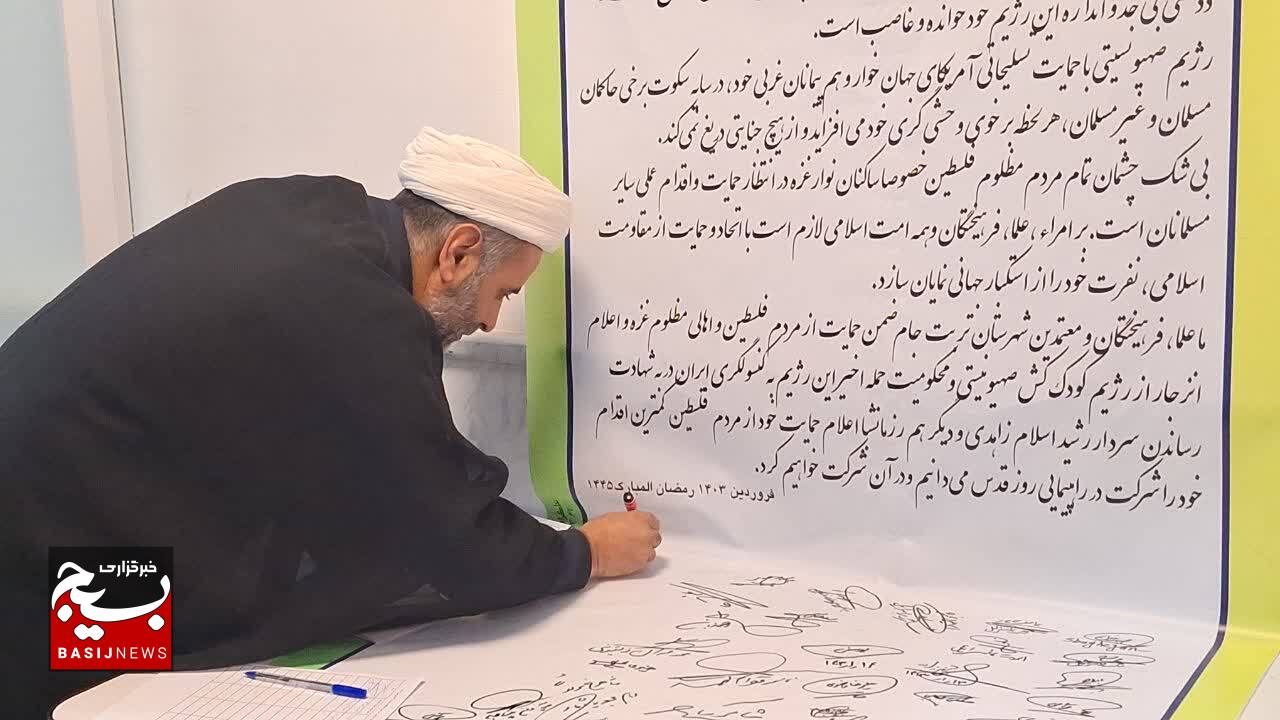 این رژیم خود خوانده و غاصب است.
رژیم صهیونیستی با حمایت تسلیحاتی آمریکای جهان خوار و هم پیمانان غربی خود، در سایه سکوت برخی حاکمان
مسلمان و غیر مسلمان، هر لحظه بر خوی وحشی گری خود می افزاید و از هیچ جنایتی دریغ نمی کند.
بی شک چشمان تمام مردم مظلوم فلسطین خصوصا ساکنان نوار غزه در انتظار حمایت و اقدام عملی سایر
مسلمانان است. بر امراء، علما، فرهیختگان و همه امت اسلامی لازم است با اتحاد و حمایت از مقاومت
اسلامی، نفرت خود را از استکبار جهانی نمایان سازد.
ما علما، فرهیختگان و معتمدین شهرستان تربت جام ضمن حمایت از مردم فلسطین و اهالی مظلوم غزه و اعلام
انزجار از رژیم کودک کش صهیونیستی و محکومیت حمله اخیر این رژیم به کنسولگری ایران در به شهادت
رساندن سردار رشید اسلام زاهدی و دیگر هم رزمانشا اعلام حمایت خود از مردم فلسطین کمترین اقدام
خود را شرکت در راهپیمایی روز قدس می دانیم و در آن شرکت خواهیم کرد.
فروردین ۱۴۰۳ رمضان المبارک ۱۴۴۵
خبرگزاری
بسیج
BASIJNEWS